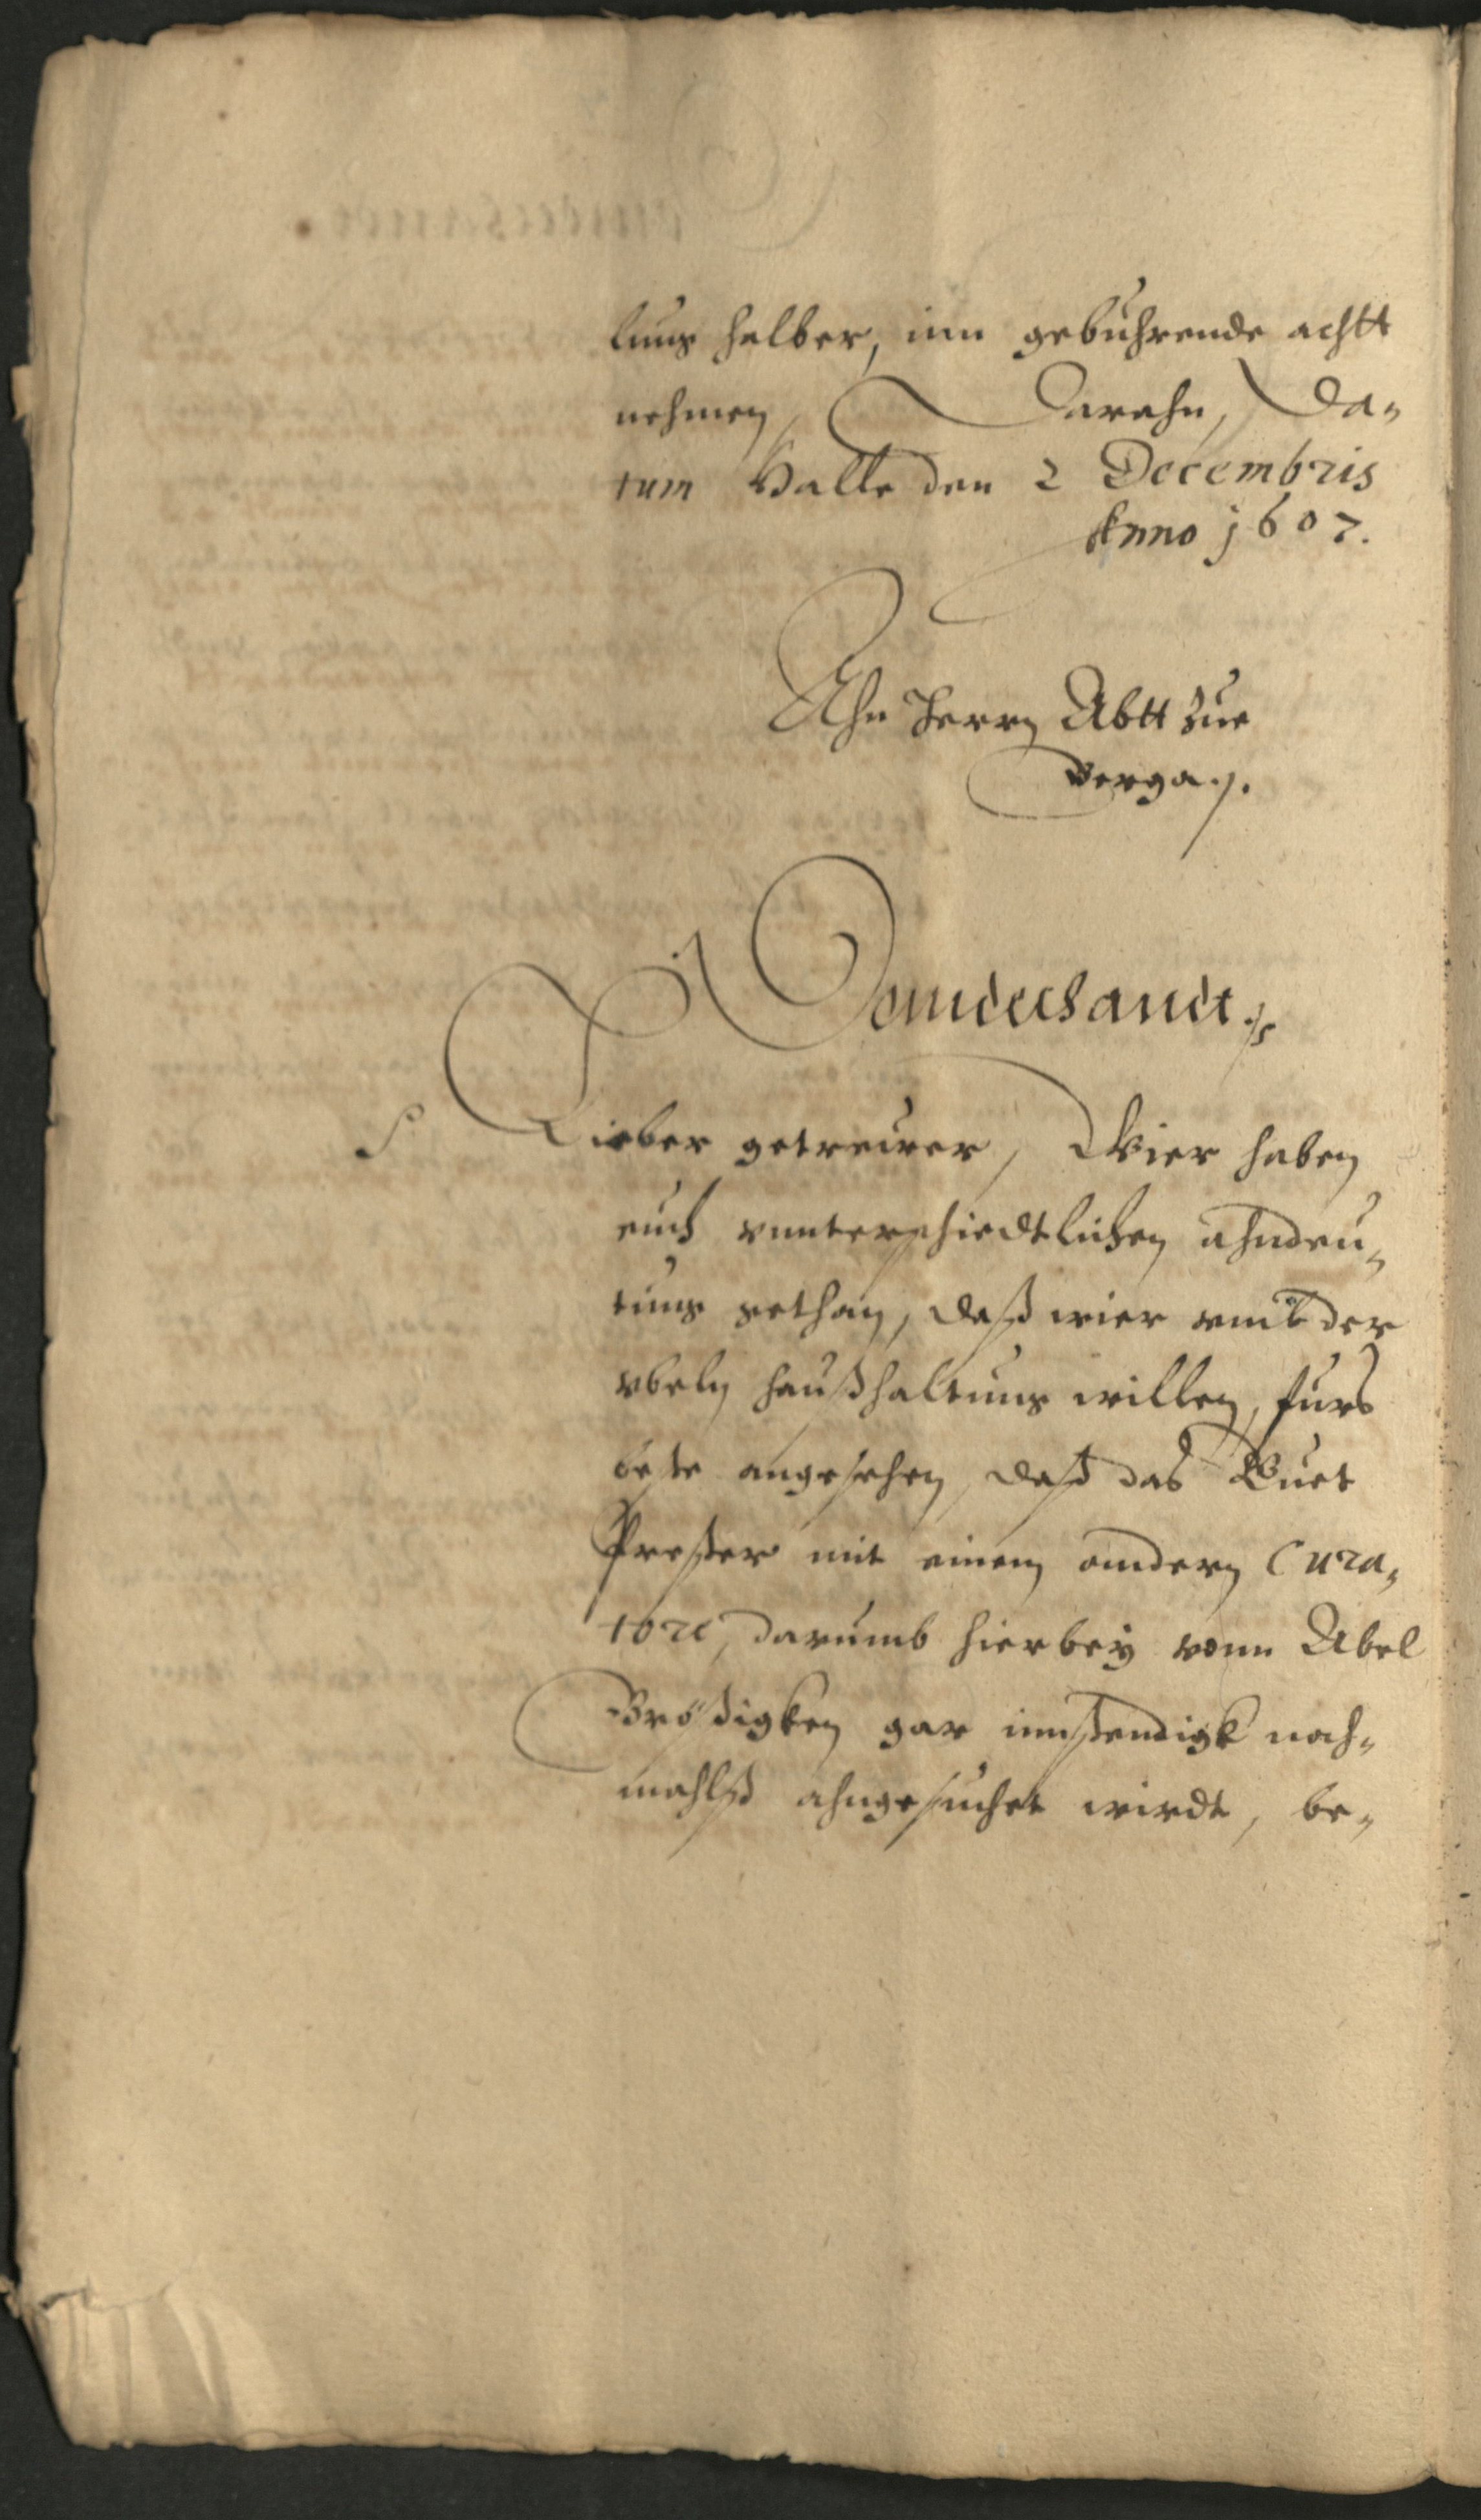 lung halber, inn gebuhrende achtt
nehmen, Darahn, Da-
tum Halle den 2 Decembris
Anno 1607.
Ahn Herrn Abtt zue
Berga
Lieber getreuer, Wier haben
euch vnnterschiedtlichen ahndeu-
tung gethan, daß wier vmb der
vbeln haußhaltung willen, furs
beste angesehen, daß das Guet
Prester mit einem andern Cura-
tore, darumb hierbey vonn Abel
Brößigken gar innstendigk noch-
mahlß ahngesuchet wirdt, be-